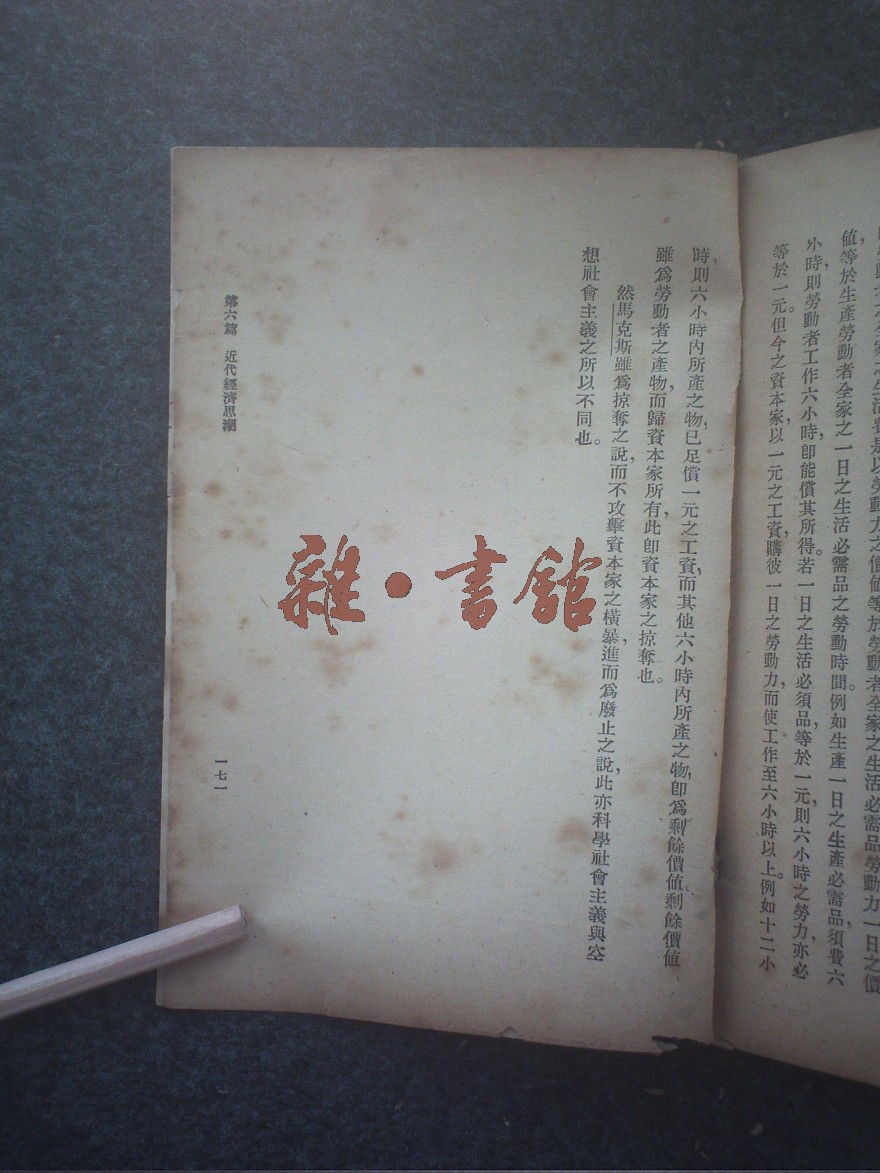 值，等於生產勞動者全家之一日之生活必需品之勞動時間。例如生產一日之生產必需品，須費六
小時，則勞動者工作六小時，卽能償其所得。若一日之生活必須品，等於一元，則六小時之勞力，亦必
等於一元。但今之資本家，以一元之工資，購彼一日之勞動力，而使工作至六小時以上。例如十二小
時，則六小時內所產之物，已足償一元之工資，而其他六小時內所產之物，卽爲剩餘價值。剩餘價值
雖爲勞動者之產物，而歸資本家所有，此卽資本家之掠奪也。
然馬克斯雖爲掠奪之說，而不攻擊資本家之橫暴，進而爲廢止之說，此亦科學社會主義與空
想社會主義之所以不同也。
第六篇 近代經濟思潮
一七一
雜·書館